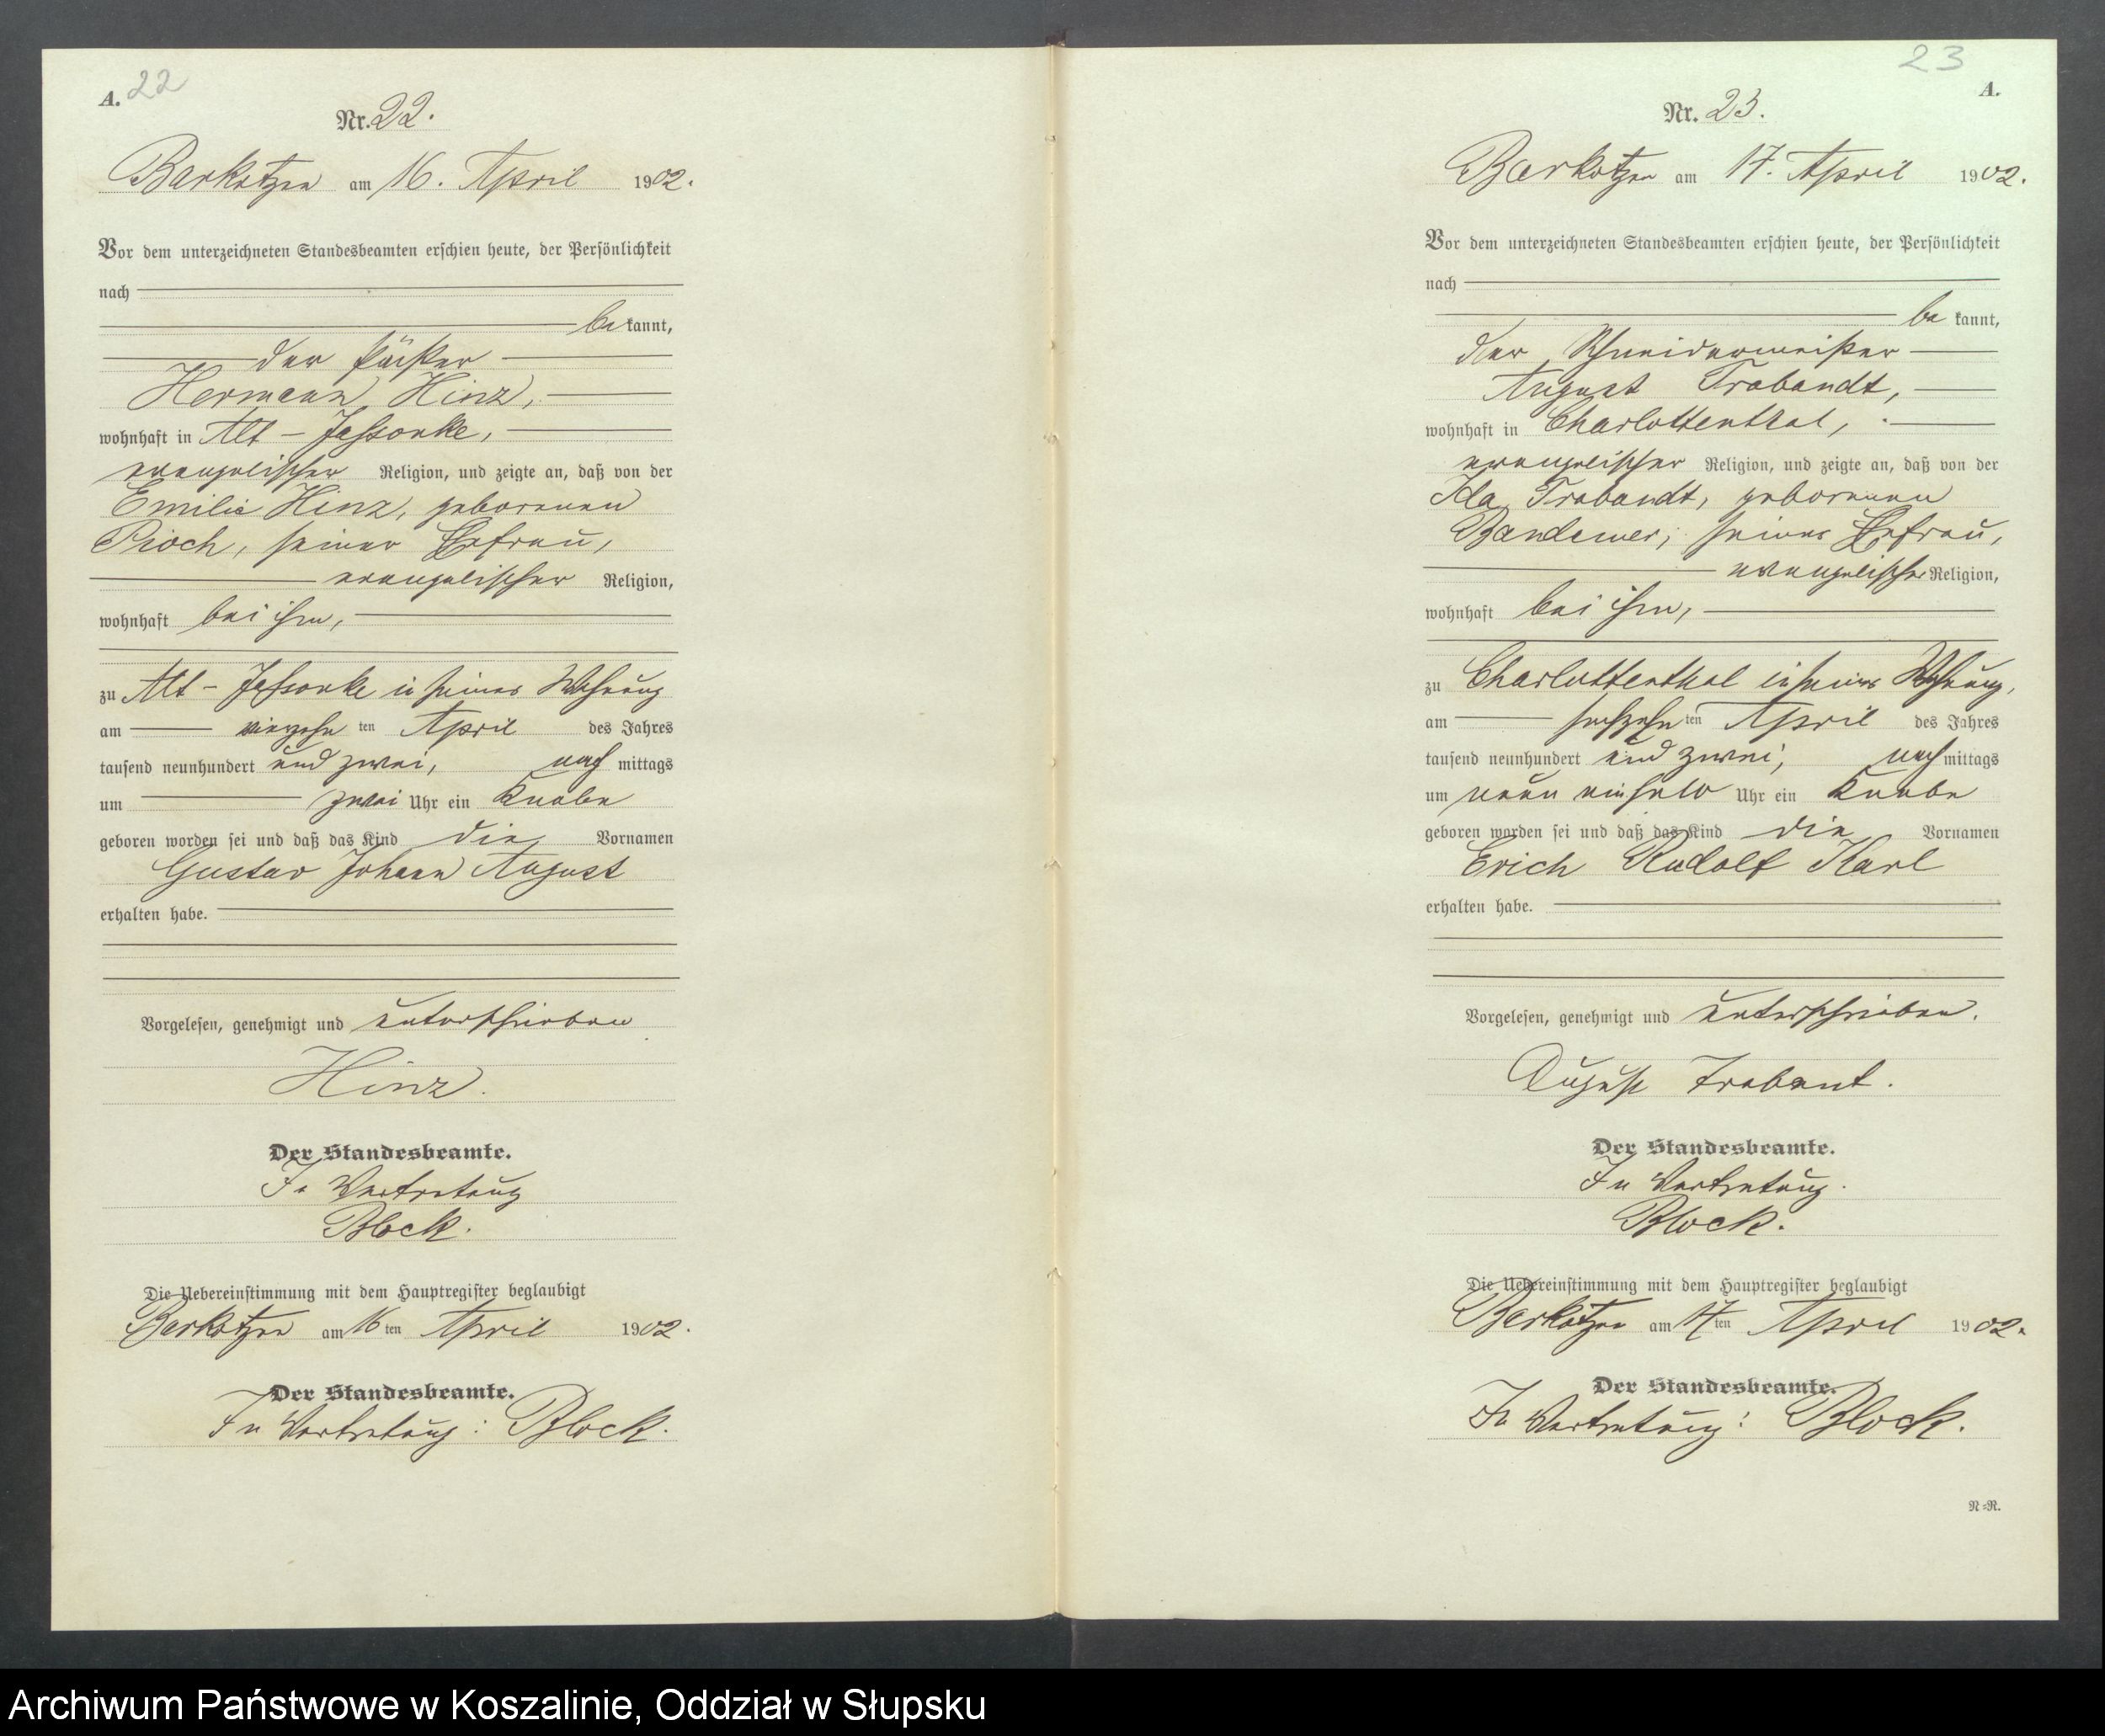 A. 22
Nr. 22.
Barkotzen am 16. April 1902.
Vor dem unterzeichneten Standesbeamten erschien heute, der Persönlichkeit
nach
bekannt,
der Pächter
Hermann Hinz,
wohnhaft in Alt-Jassonke,
evangelischer Religion, und zeigte an, daß von der
Emilie Hinz, geborenen
Pioch, seiner Ehefrau,
evangelischer Religion,
wohnhaft bei ihm,
zu Alt-Jassonke in seiner Wohnung
am vierzehn ten April des Jahres
tausend neunhundert und zwei, nach mittags
um zwei Uhr ein Knabe
geboren worden sei und daß das Kind die Vornamen
Gustav Johann August
erhalten habe.
Vorgelesen, genehmigt und unterschrieben
Hinz.
Der Standesbeamte.
In Vertretung
Block.
Die Uebereinstimmung mit dem Hauptregister beglaubigt
Barkotzen am 16 ten April 1902.
Der Standesbeamte.
In Vertretung: Block.
23
A.
Nr. 23.
Barkotzen am 17. April 1902.
Vor dem unterzeichneten Standesbeamten erschien heute, der Persönlichkeit
nach
bekannt,
der Schneidermeister
August Trabandt,
wohnhaft in Charlottenthal,
evangelischer Religion, und zeigte an, daß von der
Ida Trabandt, geborenen
Bandemer, seiner Ehefrau,
evangelischer Religion,
wohnhaft bei ihm,
zu Charlottenthal in seiner Wohnung,
am sechszehn ten April des Jahres
tausend neunhundert und zwei, nach mittags
um neun einhalb Uhr ein Knabe
geboren worden sei und daß das Kind die Vornamen
Erich Rudolf Karl
erhalten habe.
Vorgelesen, genehmigt und unterschrieben.
August Trabant.
Der Standesbeamte.
In Vertretung.
Block.
Die Uebereinstimmung mit dem Hauptregister beglaubigt
Barkotzen am 17 ten April 1902.
Der Standesbeamte.
In Vertretung: Block.
N=R.
Archiwum Państwowe w Koszalinie, Oddział w Słupsku